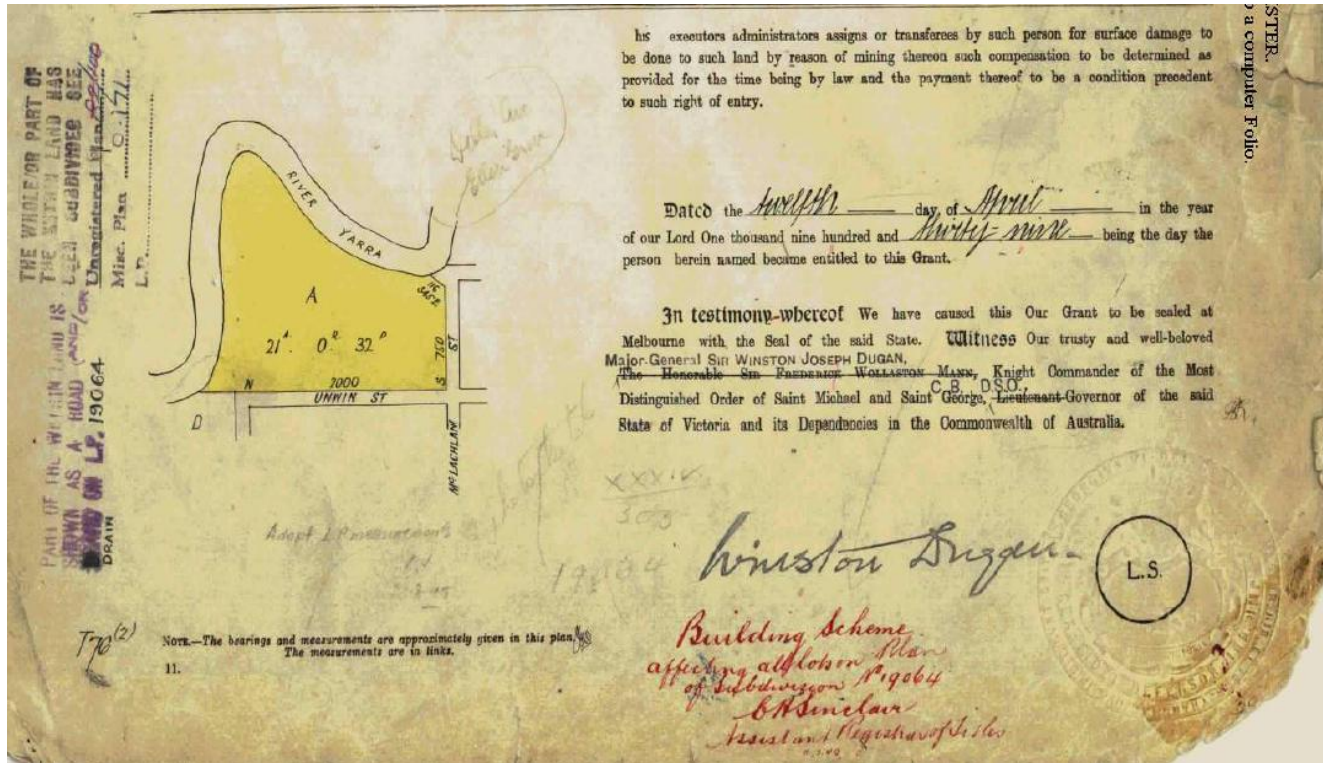 THE WHOLE/OR PART OF
THE WITHIN LAND HAS
BEEN SUBDIVIDED SEE
Unregistered Plan
Misc. Plan
L.P.
PART OF THE WITHIN LAND IS
SHOWN AS A ROAD AND/OR
ON L.P. 19064
DRAIN
RIVER
YARRA
A
21A. 0R. 32P
N
2000
UNWIN ST
D
S 750
ST
McLACHLAN
Adopt
T76(2)
NOTE.—The bearings and measurements are approximately given in this plan.
The measurements are in links.
11.
STER.
o a computer Folio.
his executors administrators assigns or transferees by such person for surface damage to
be done to such land by reason of mining thereon such compensation to be determined as
provided for the time being by law and the payment thereof to be a condition precedent
to such right of entry.
Dated the twelfth day of April in the year
of our Lord One thousand nine hundred and thirty-nine being the day the
person herein named became entitled to this Grant.
In testimony whereof We have caused this Our Grant to be sealed at
Melbourne with the Seal of the said State. Witness Our trusty and well-beloved
Major-General Sir WINSTON JOSEPH DUGAN,
The Honorable Sir FREDERICK WOLLASTON MANN, Knight Commander of the Most
C.B. D.S.O.,
Distinguished Order of Saint Michael and Saint George, Lieutenant-Governor of the said
State of Victoria and its Dependencies in the Commonwealth of Australia.
XXXIV
19064
Winston Dugan
L.S.
Building Scheme
affecting all lots on Plan
of Subdivision No 19064
CH Sinclair
Assistant Registrar of Titles